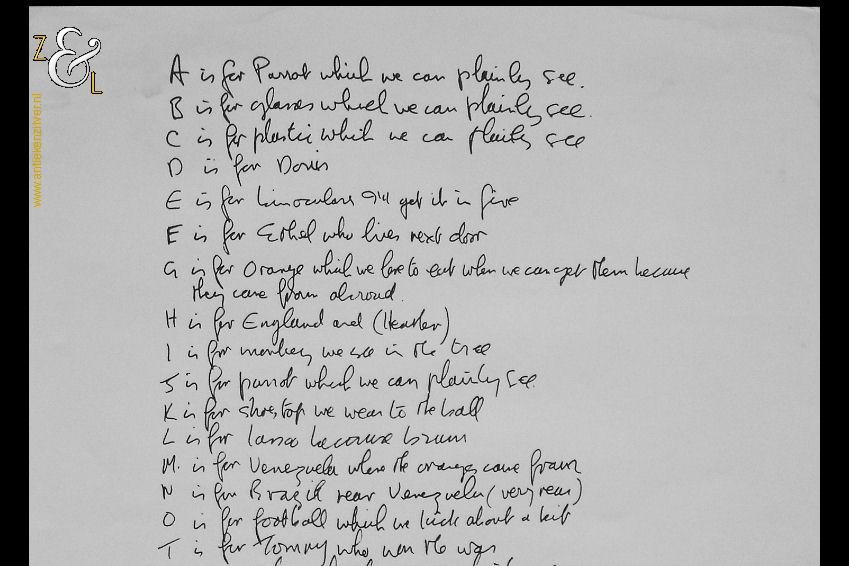 Z & L
www.antiekenzilver.nl
A is for Parrot which we can plainly see.
B is for glasses which we can plainly see.
C is for plastic which we can plainly see
D is for Doris
E is for binoculars I'll get it in five
F is for Ethel who lives next door
G is for Orange which we love to eat when we can get them because
they come from abroad.
H is for England and (Heather)
I is for monkey we see in the tree
J is for parrot which we can plainly see
K is for shoestop we wear to the ball
L is for because brown
M. is for Venezuela where the oranges come from
N is for Brazil near Venezuela (very near)
O is for football which we kick about a bit
T is for Tommy who won the war